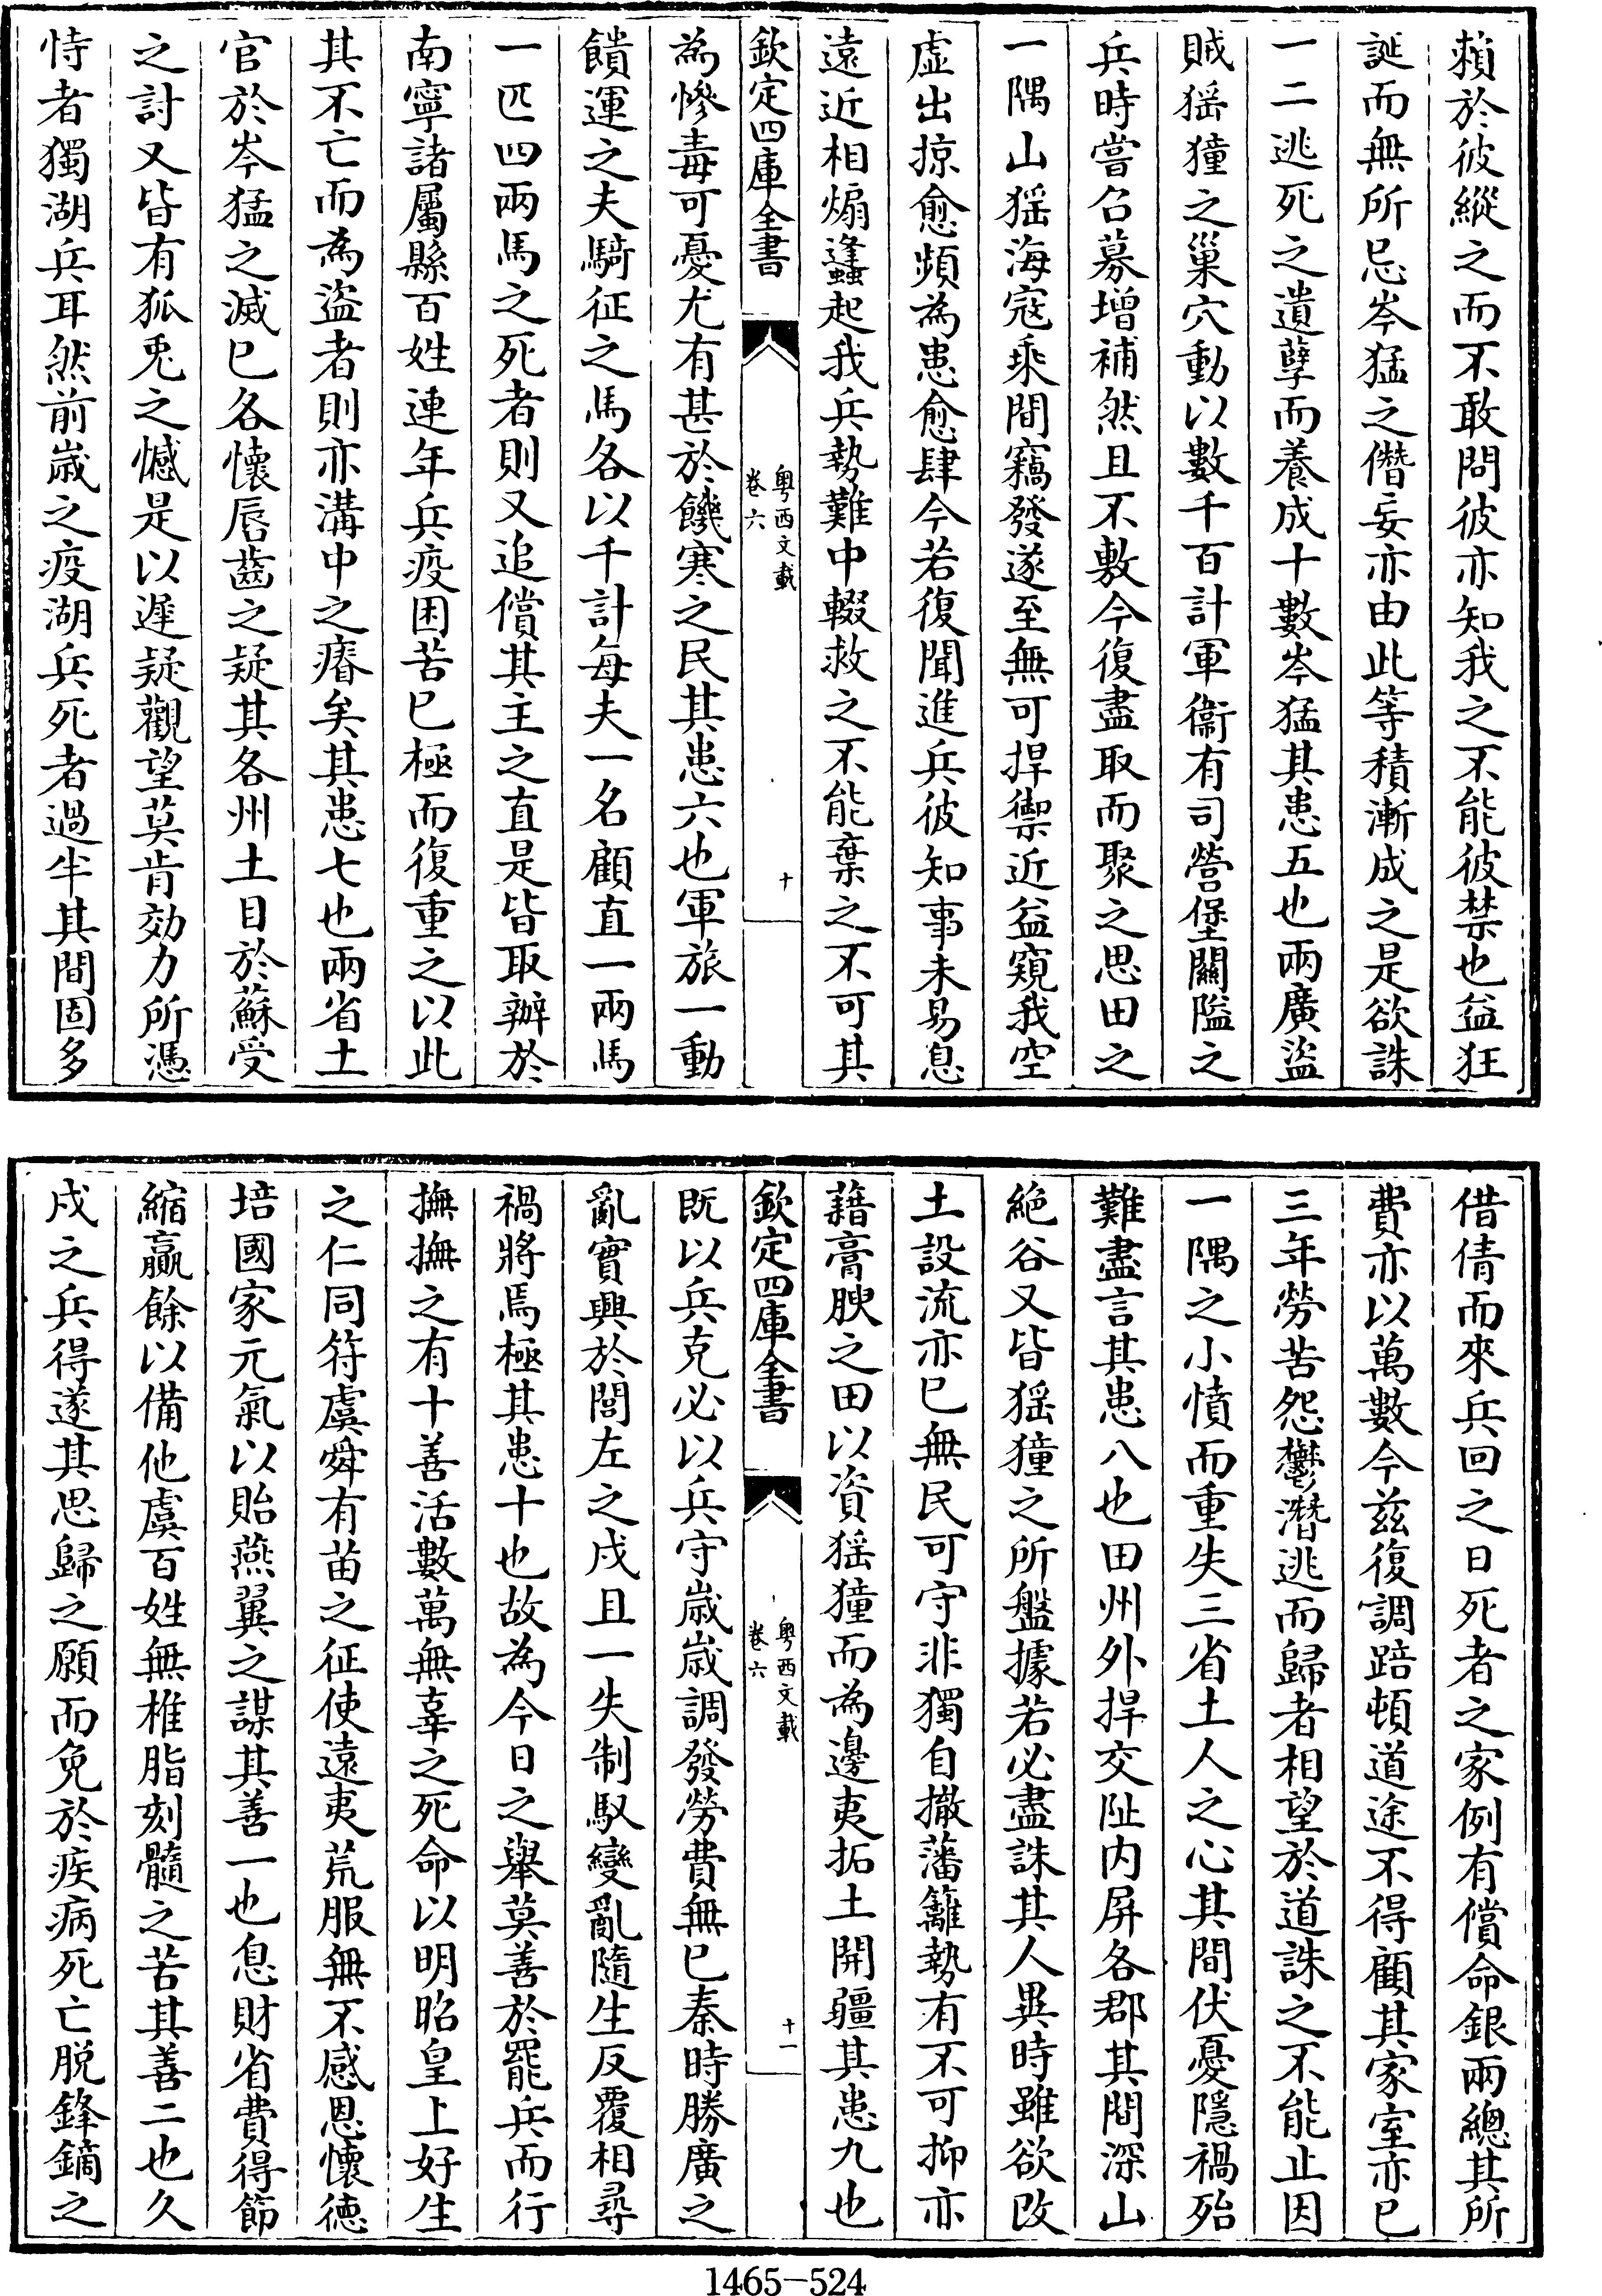 賴於彼縱之而不敢問彼亦知我之不能彼禁也益狂
誕而無所忌岑猛之僭妄亦由此等積漸成之是欲誅
一二逃死之遺孽而養成十數岑猛其患五也兩廣盜
賊猺獞之巢穴動以數千百計軍衞有司營堡關隘之
兵時嘗召募增補然且不敷今復盡取而聚之思田之
一隅山猺海寇乘間竊發遂至無可捍禦近益窺我空
虛出掠愈頻為患愈肆今若復聞進兵彼知事未易息
遠近相煽蠭起我兵勢難中輟救之不能棄之不可其
欽定四庫全書
粵西文載
卷六
十
為慘毒可憂尤有甚於饑寒之民其患六也軍旅一動
饋運之夫騎征之馬各以千計每夫一名顧直一兩馬
一匹四兩馬之死者則又追償其主之直是皆取辦於
南寧諸屬縣百姓連年兵疫困苦已極而復重之以此
其不亡而為盜者則亦溝中之瘠矣其患七也兩省土
官於岑猛之滅已各懷唇齒之疑其各州土目於蘇受
之討又皆有狐兎之憾是以遲疑觀望莫肯効力所憑
恃者獨湖兵耳然前歲之疫湖兵死者過半其間固多
借倩而來兵回之日死者之家例有償命銀兩總其所
費亦以萬數今茲復調踣頓道途不得顧其家室亦已
三年勞苦怨鬱潛逃而歸者相望於道誅之不能止因
一隅之小憤而重失三省土人之心其間伏憂隱禍殆
難盡言其患八也田州外捍交阯内屏各郡其間深山
絶谷又皆猺獞之所盤據若必盡誅其人異時雖欲改
土設流亦已無民可守非獨自撤藩籬勢有不可抑亦
藉膏腴之田以資猺獞而為邊夷拓土開疆其患九也
欽定四庫全書
粵西文載
卷六
十一
既以兵克必以兵守歲歲調發勞費無已秦時勝廣之
亂實興於閭左之戍且一失制馭變亂隨生反覆相尋
禍將焉極其患十也故為今日之舉莫善於罷兵而行
撫撫之有十善活數萬無辜之死命以明昭皇上好生
之仁同符虞舜有苗之征使遠夷荒服無不感恩懷德
培國家元氣以貽燕翼之謀其善一也息財省費得節
縮贏餘以備他虞百姓無椎脂刻髓之苦其善二也久
戍之兵得遂其思歸之願而免於疾病死亡脱鋒鏑之
1465-524